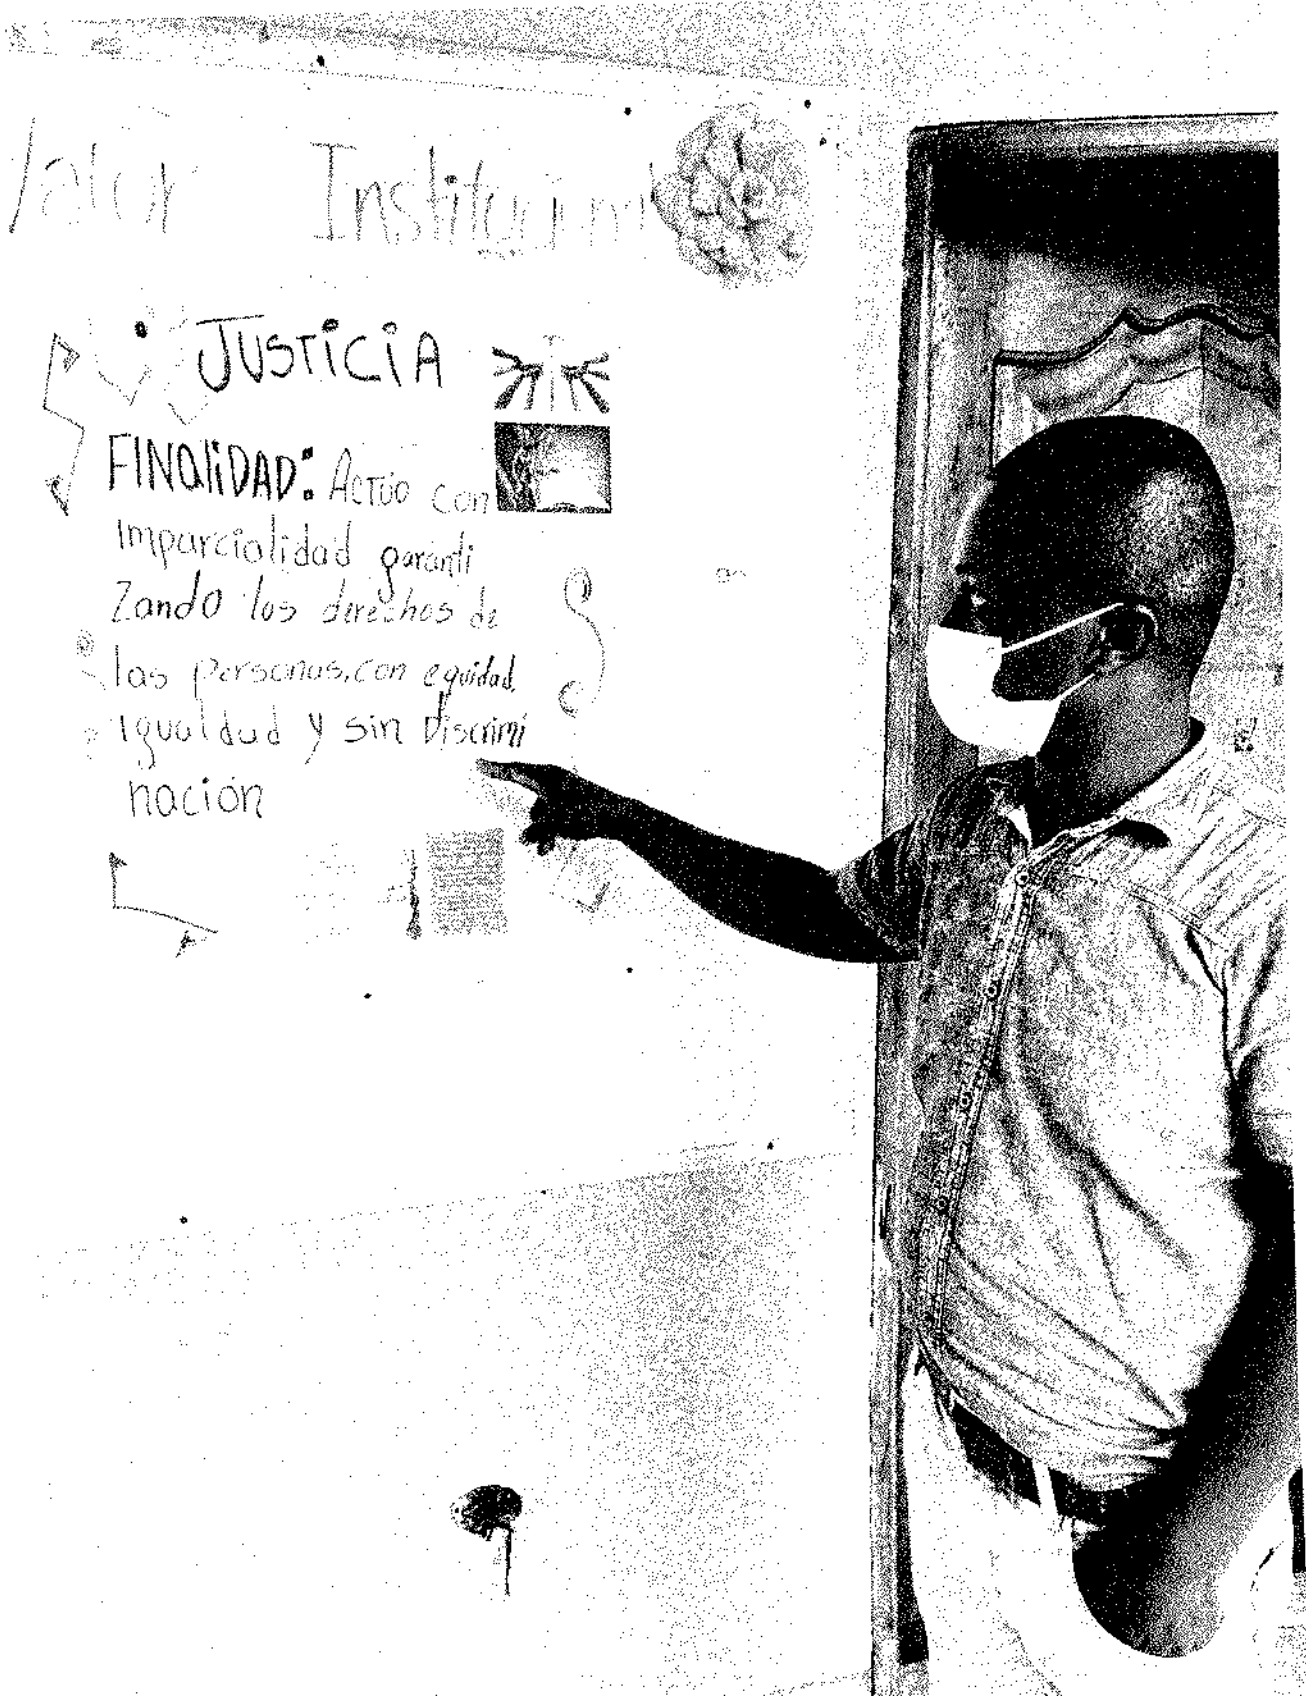 Valor Institucional
JUSTICIA
FINALIDAD: ACTÚO con
Imparcialidad garanti
Zando los derechos de
las personas, con equidad,
Igualdad y sin Discrimi
nación